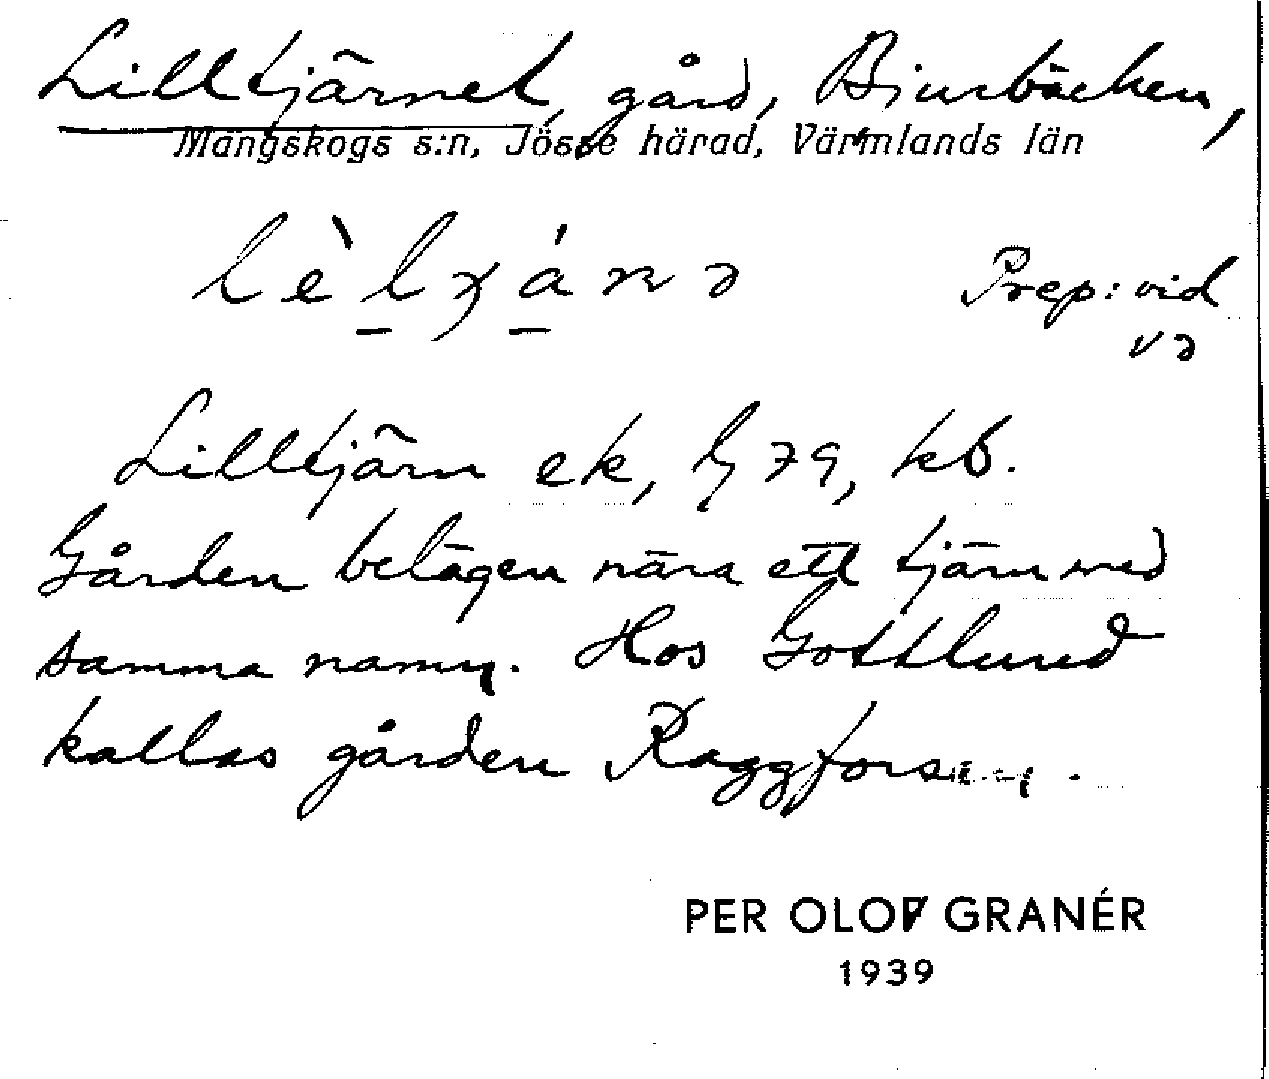 Lilltjärnet, gård, Bjurbäcken,
Mangskogs s:n, Jösse härad, Värmlands län
Prep: vid
və
Lilltjärn ek, G 79, kb.
Gården belägen nära ett tjärn med
samma namn. Hos Gottlund
kallas gården Raggforsen.
PER OLOF GRANÉR
1939